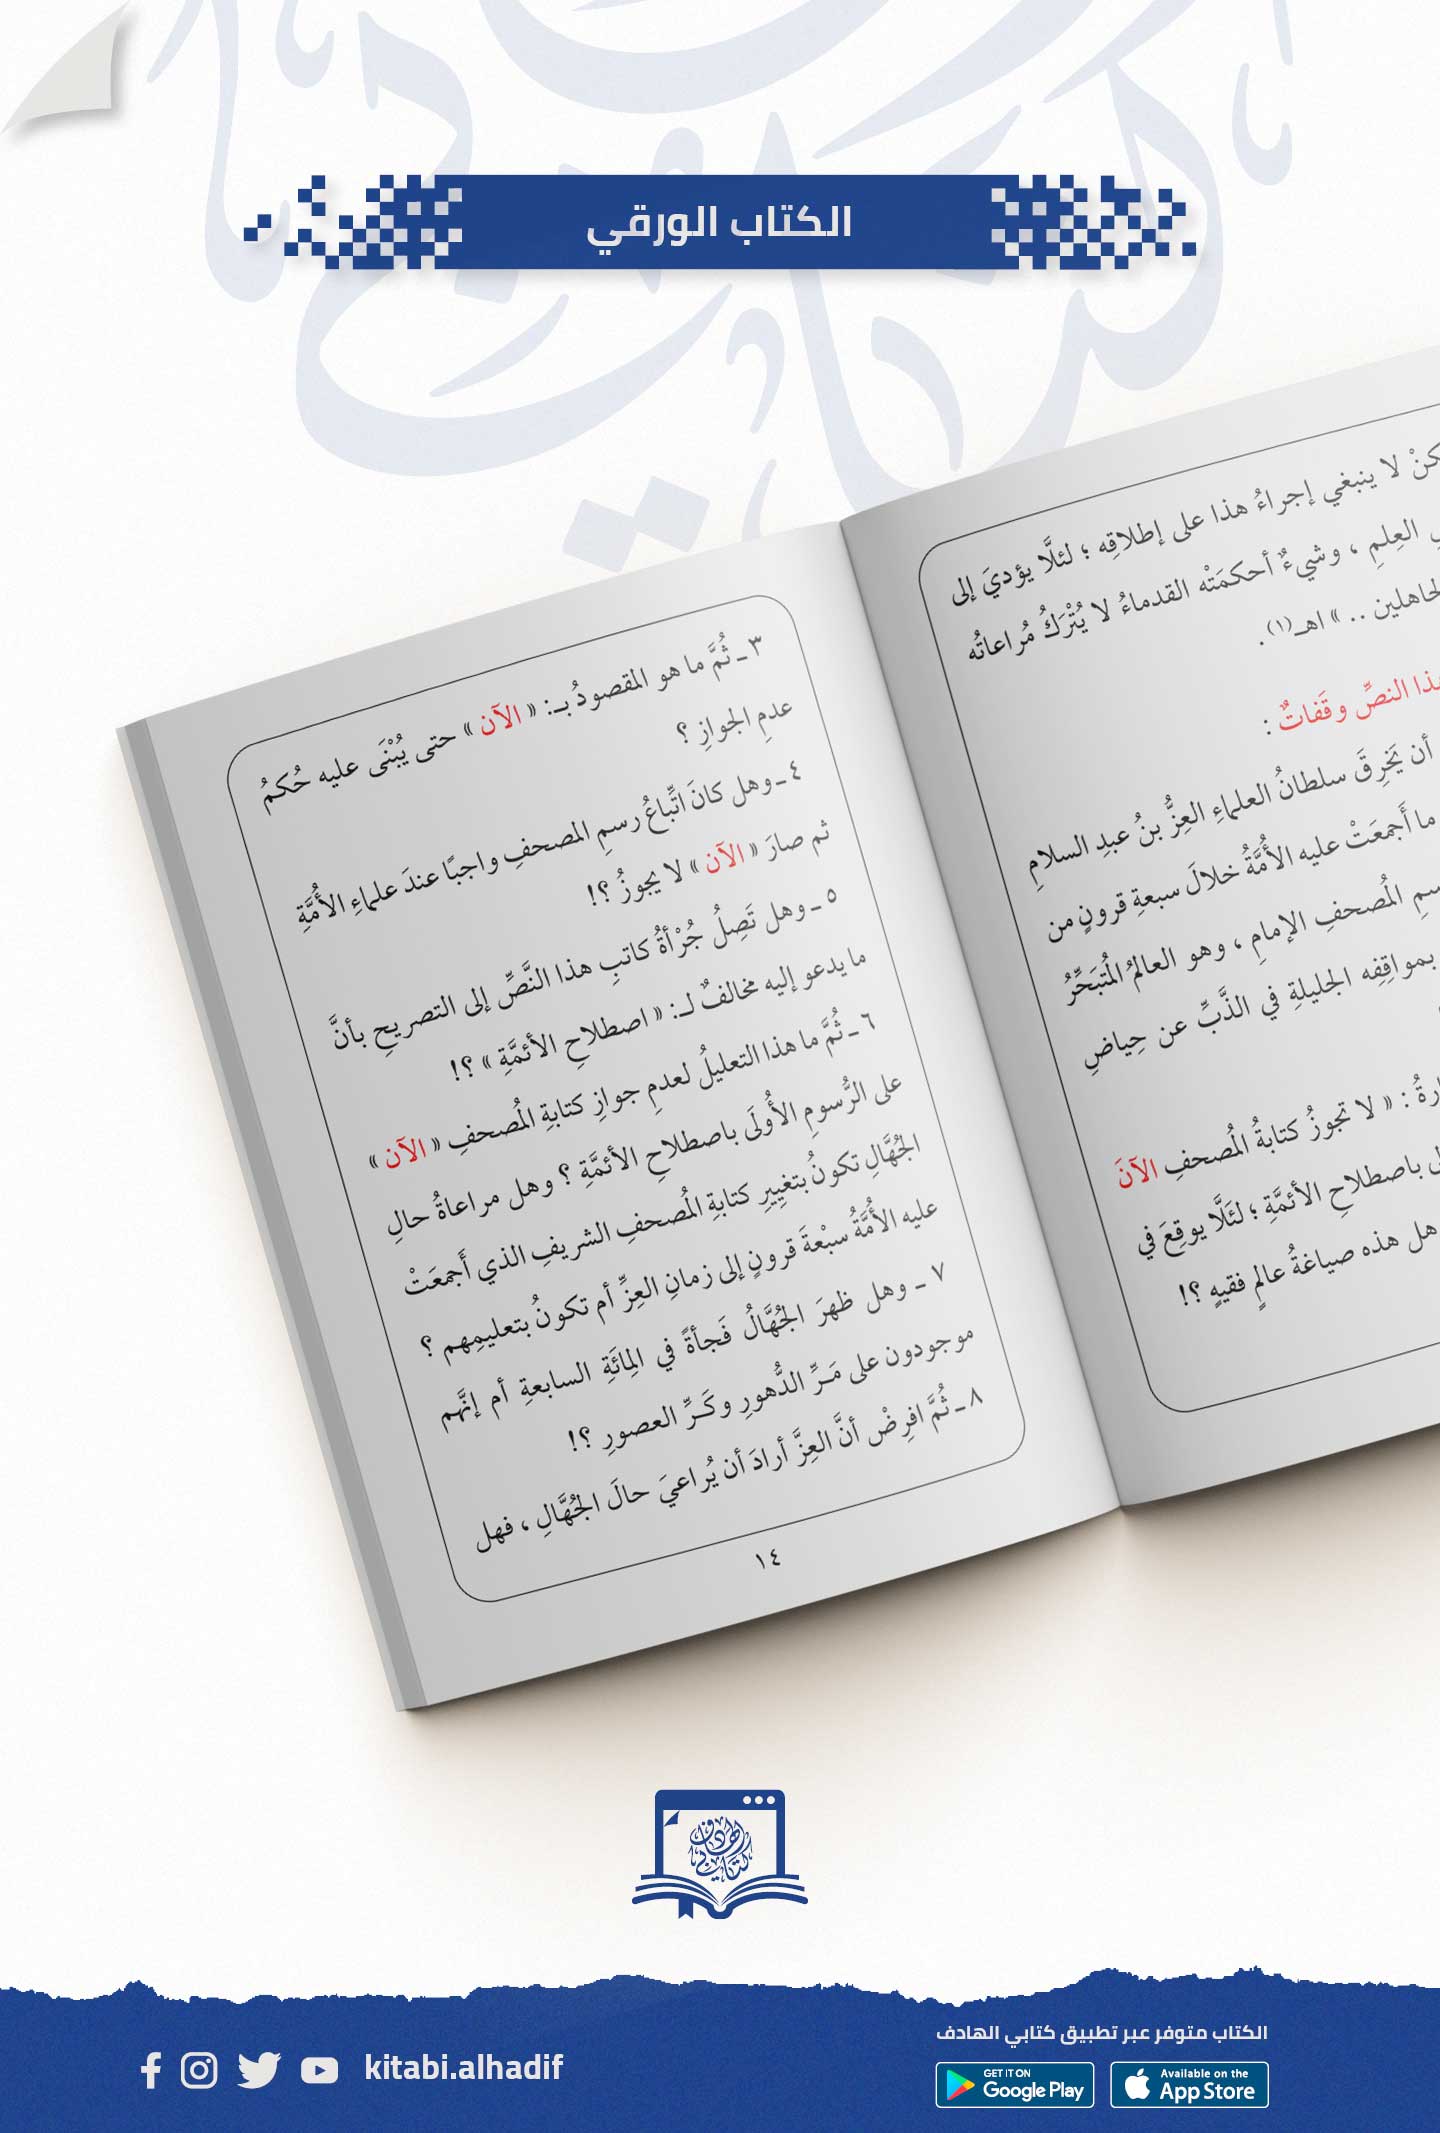 الكتاب الورقي
لا ينبغي إجراءُ هذا على إطلاقِه ؛ لئلَّا يؤديَ إلى
العِلمِ ، وشيءٌ أحكمَتْه القدماءُ لا يُتْرَكُ مُراعاتُه
.. » اهـ(١).
النصِّ وقَفاتٌ :
أن يَخرِقَ سلطانُ العلماءِ العِزُّ بنُ عبدِ السلامِ
ما أَجمعَتْ عليه الأُمَّةُ خلالَ سبعةِ قرونٍ من
المُصحفِ الإمامِ ، وهو العالمُ المُتبَحِّرُ
بمواقِفِه الجليلةِ في الذَّبِّ عن حِياضِ
: « لا تجوزُ كتابةُ المُصحفِ الآنَ
باصطلاحِ الأئمَّةِ ؛ لئَلَّا يوقِعَ في
هل هذه صياغةُ عالمٍ فقيهٍ ؟!
٣ ـ ثُمَّ ما هو المقصودُ بـ: « الآن » حتى يُبْنَى عليه حُكمُ
عدمِ الجوازِ ؟
٤ ـ وهل كانَ اتِّباعُ رسمِ المصحفِ واجبًا عندَ علماءِ الأُمَّةِ
ثم صارَ « الآن » لا يجوزُ ؟!
٥ ـ وهل تَصِلُ جُرْأةُ كاتبِ هذا النَّصِّ إلى التصريحِ بأنَّ
ما يدعو إليه مخالفٌ لـ: « اصطلاحِ الأئمَّةِ » ؟!
٦ ـ ثُمَّ ما هذا التعليلُ لعدمِ جوازِ كتابةِ المُصحفِ « الآن »
على الرُّسومِ الأُولَى باصطلاحِ الأئمَّةِ ؟ وهل مراعاةُ حالِ
الجُهَّالِ تكونُ بتغيِيرِ كتابةِ المُصحفِ الشريفِ الذي أَجمعَتْ
عليه الأُمَّةُ سبْعةَ قرونٍ إلى زمانِ العِزِّ أم تكونُ بتعليمِهم ؟
٧ ـ وهل ظهرَ الجُهَّالُ فَجأةً في المِائَةِ السابعةِ أم إنَّهم
موجودون على مَـرِّ الدُّهورِ وكَـرِّ العصورِ ؟!
٨ ـ ثُمَّ افرِضْ أنَّ العِزَّ أرادَ أن يُراعيَ حالَ الجُهَّالِ ، فهل
١٤
الكتاب متوفر عبر تطبيق كتابي الهادف
kitabi.alhadif
GET IT ON
Google Play
Available on the
App Store